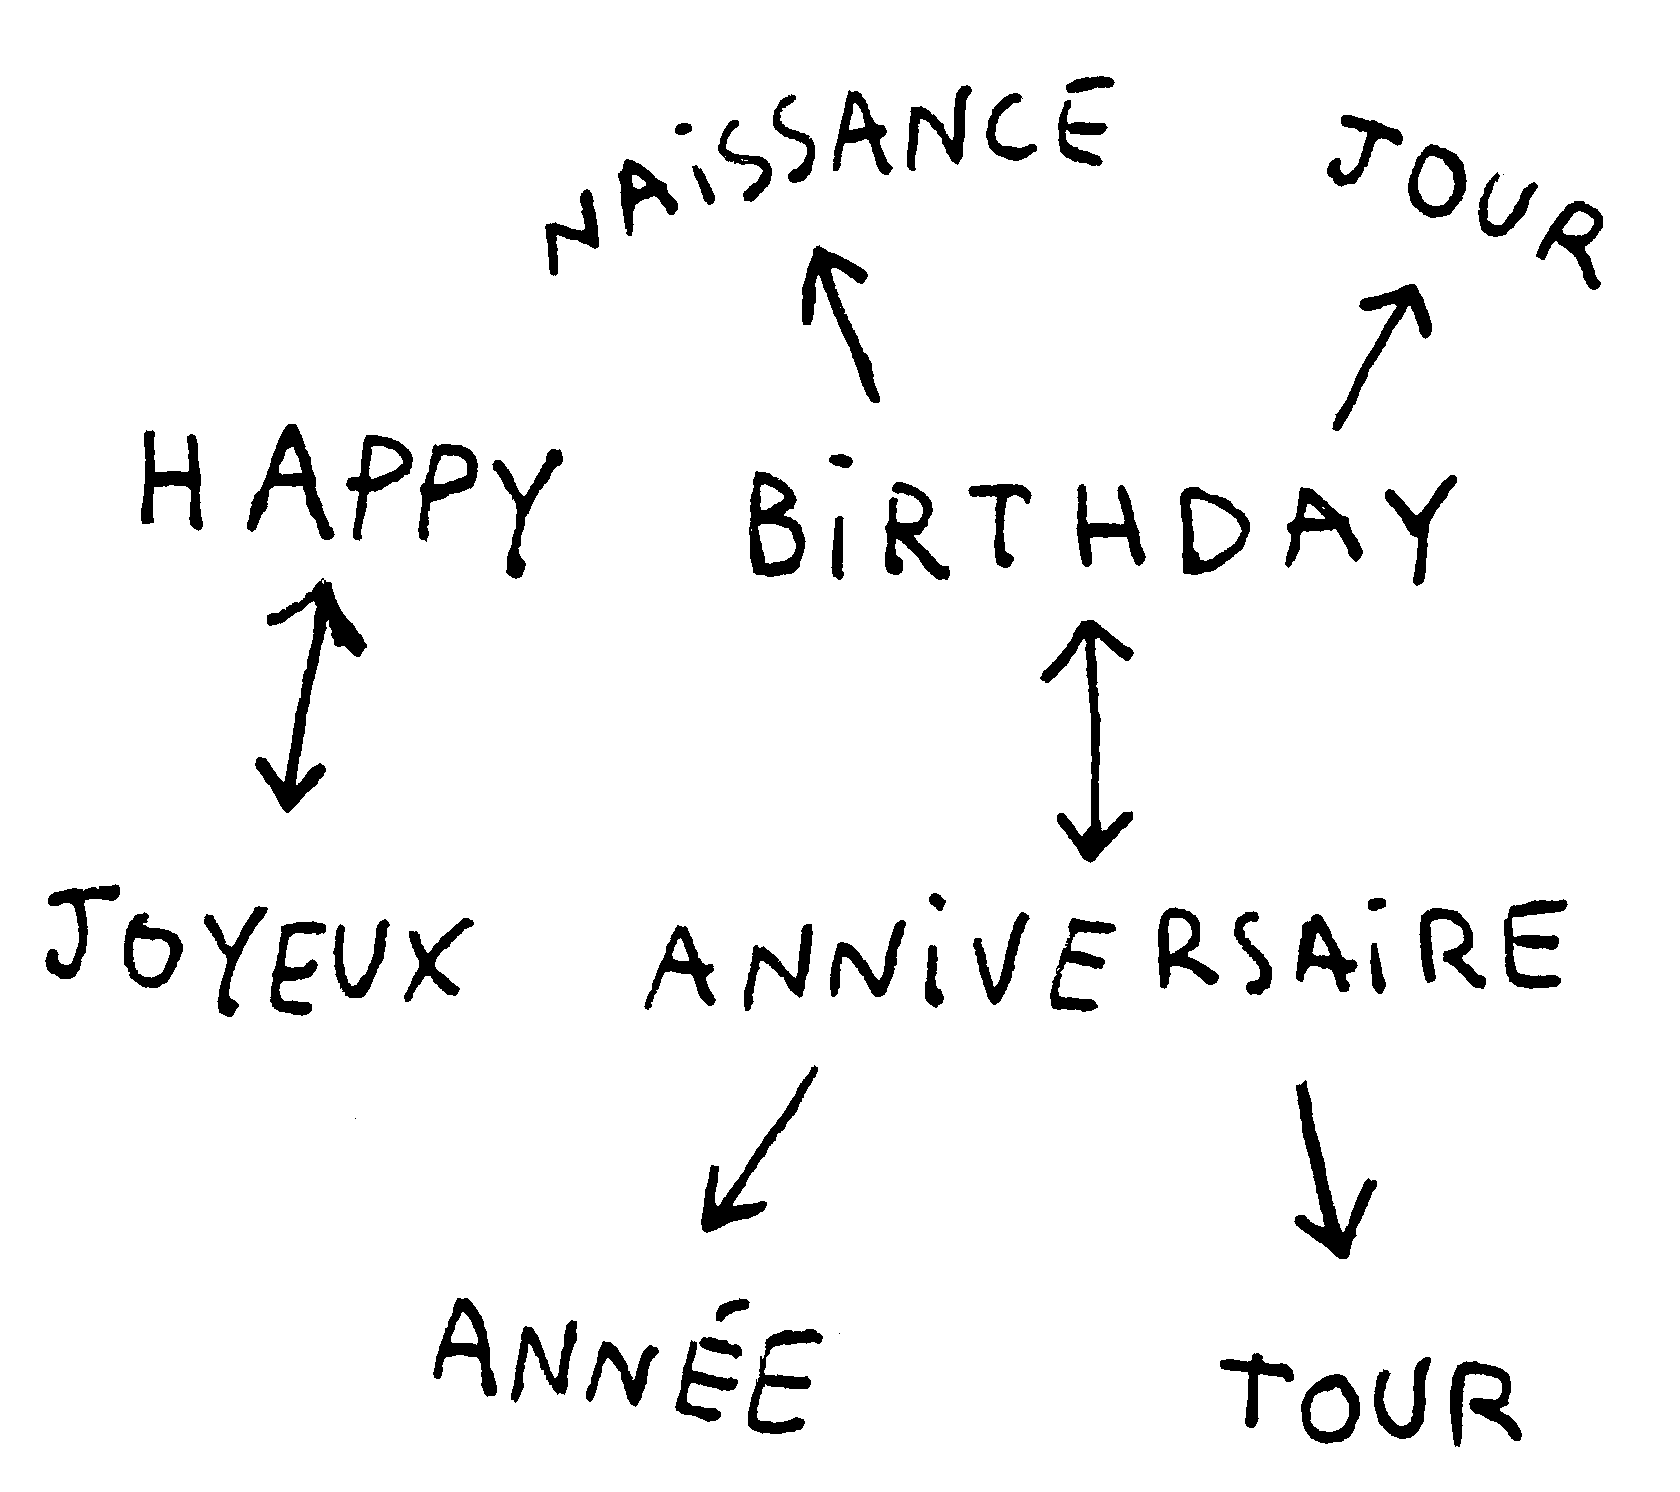 NAiSSANCE JOUR
HAPPY BiRTHDAY
JOYEUX ANNiVERSAiRE
ANNÉE TOUR